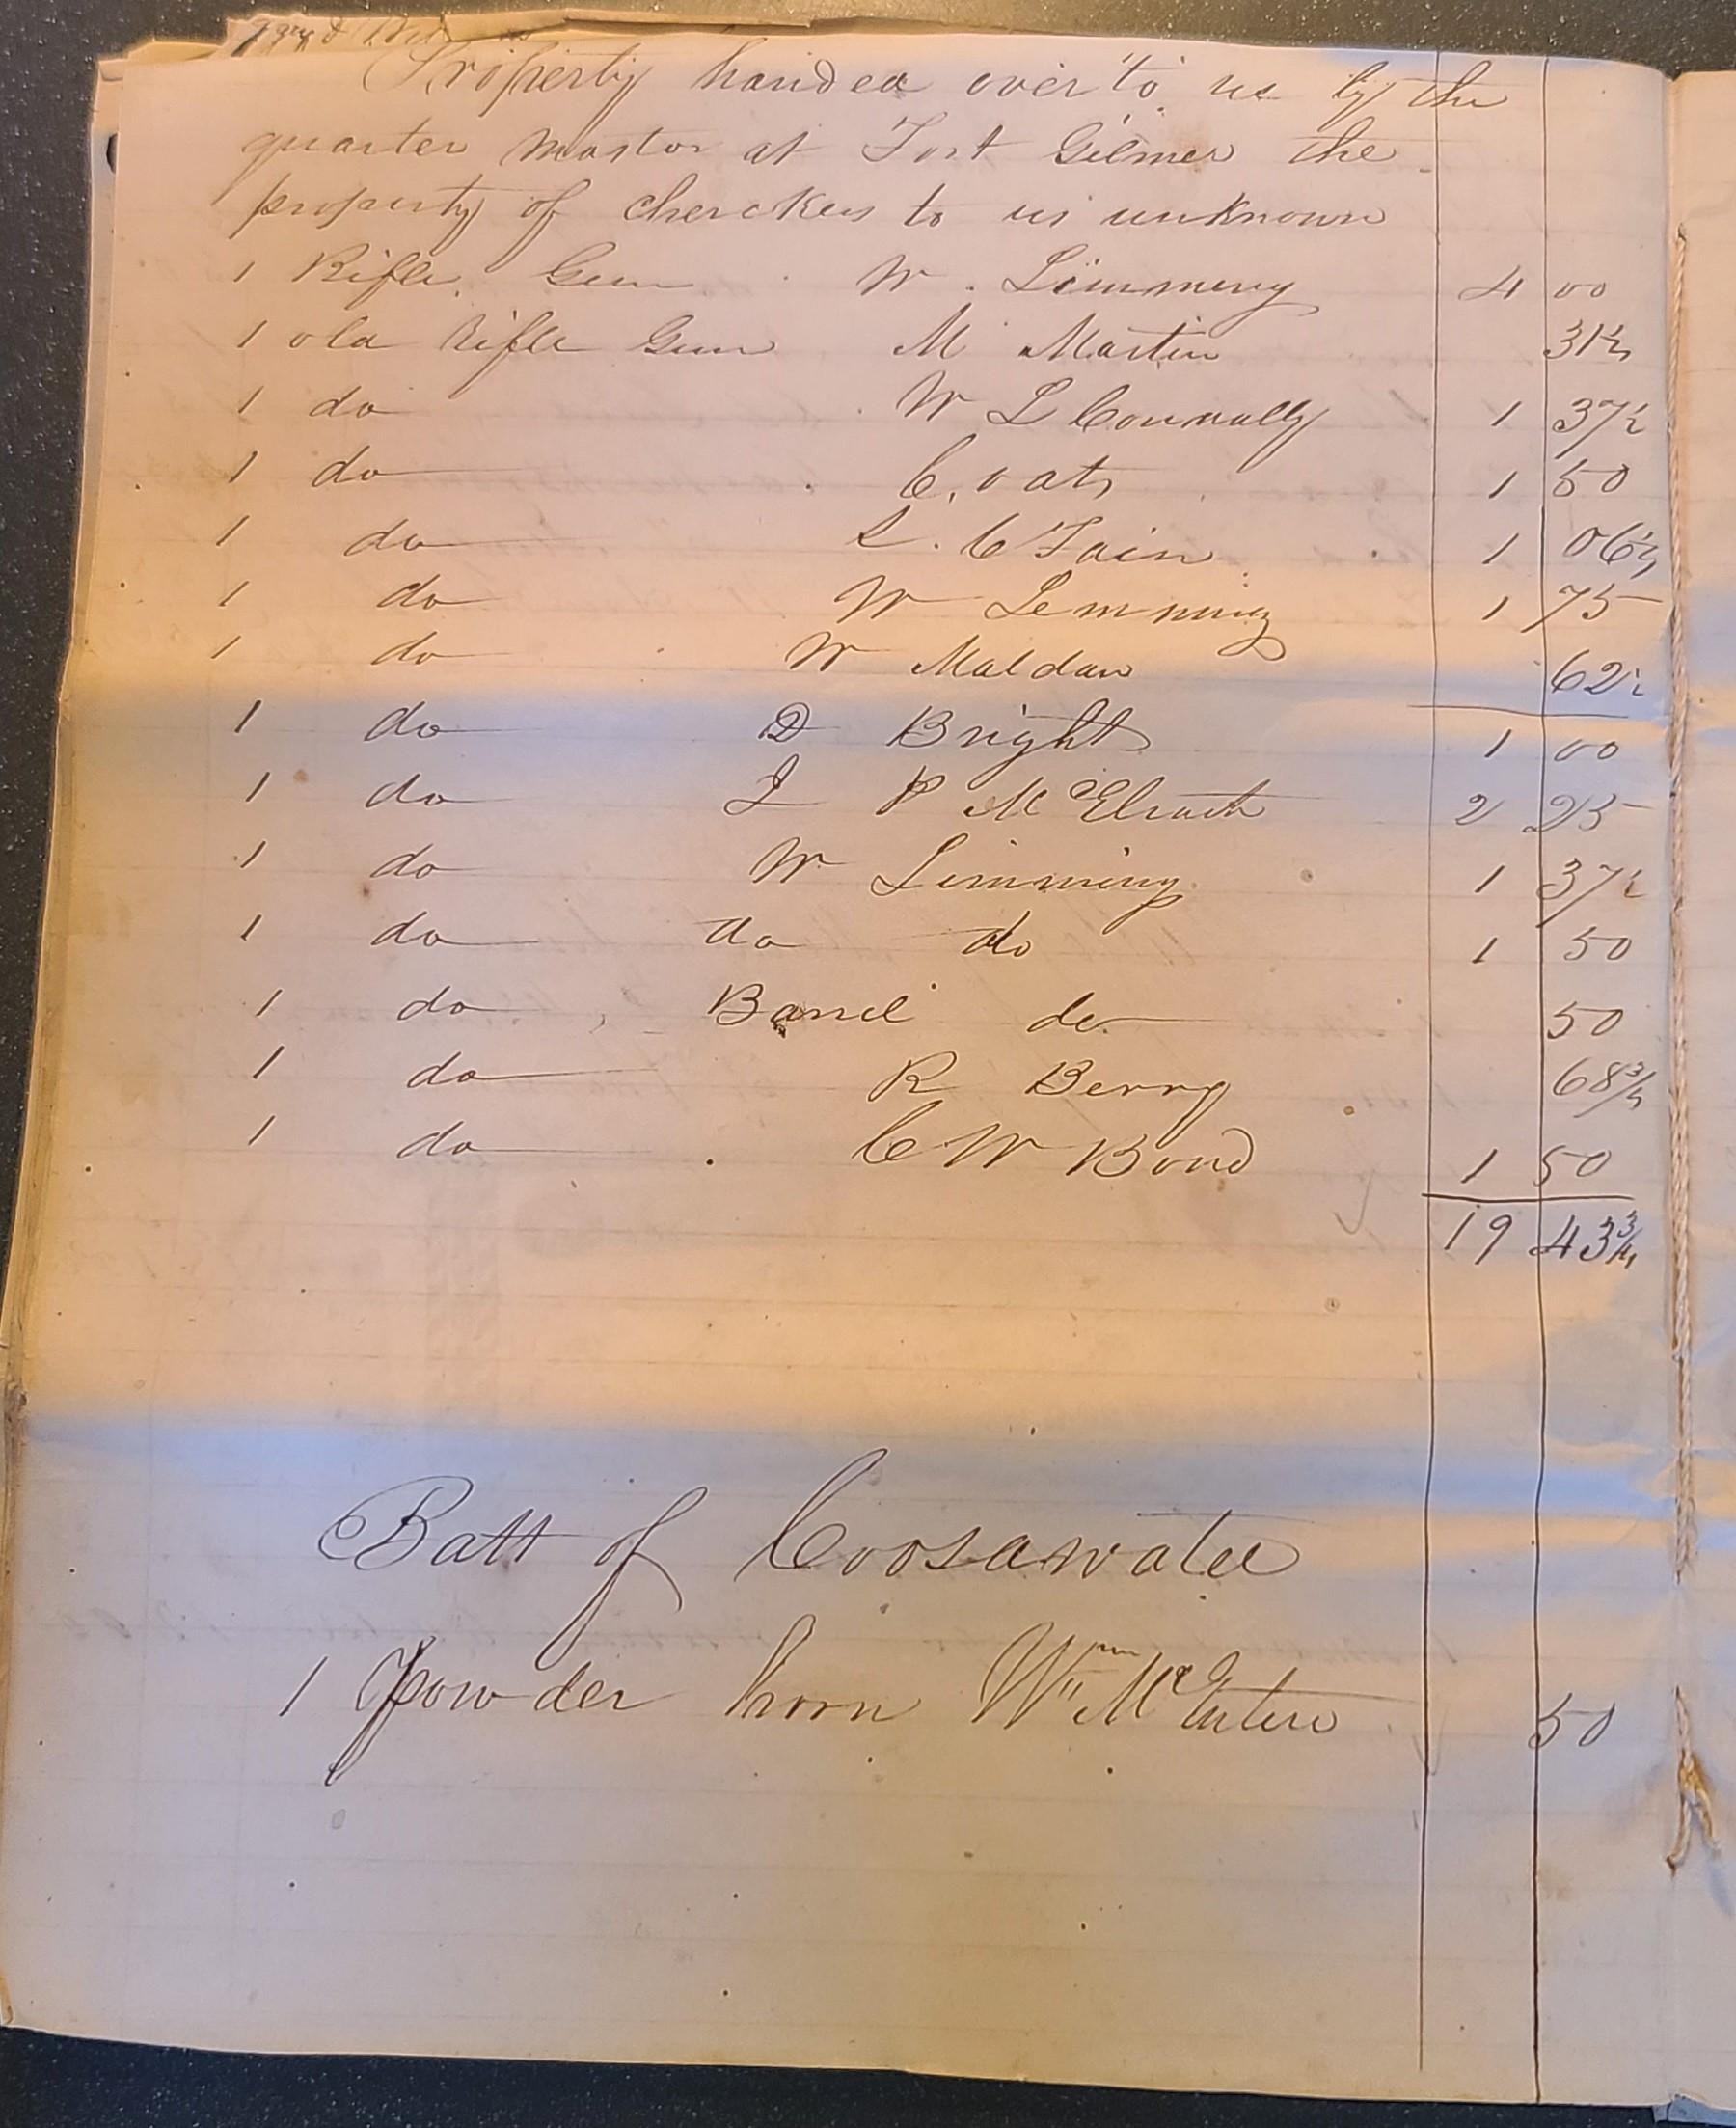 Property handed over to us by the
quarter master at Fort Gilmer the
property of cherokees to us unknown
1 Rifle Gun W. Limming 4 00
1 old Rifle Gun M Martin 31½
1 do W L Connally 1 37½
1 do C. oats 1 50
1 do S. C Fain 1 06¼
1 do W Lemming 1 75
1 do W Maldan 62½
1 do D Bright 1 00
1 do J P McElrath 2 25
1 do W Limming 1 37½
1 do do do 1 50
1 do Barrel do 50
1 do R Berry 68¾
1 do C W Bond 1 50
19 43¾
Batt of Coosawatee
1 Powder horn Wm McEntire 50